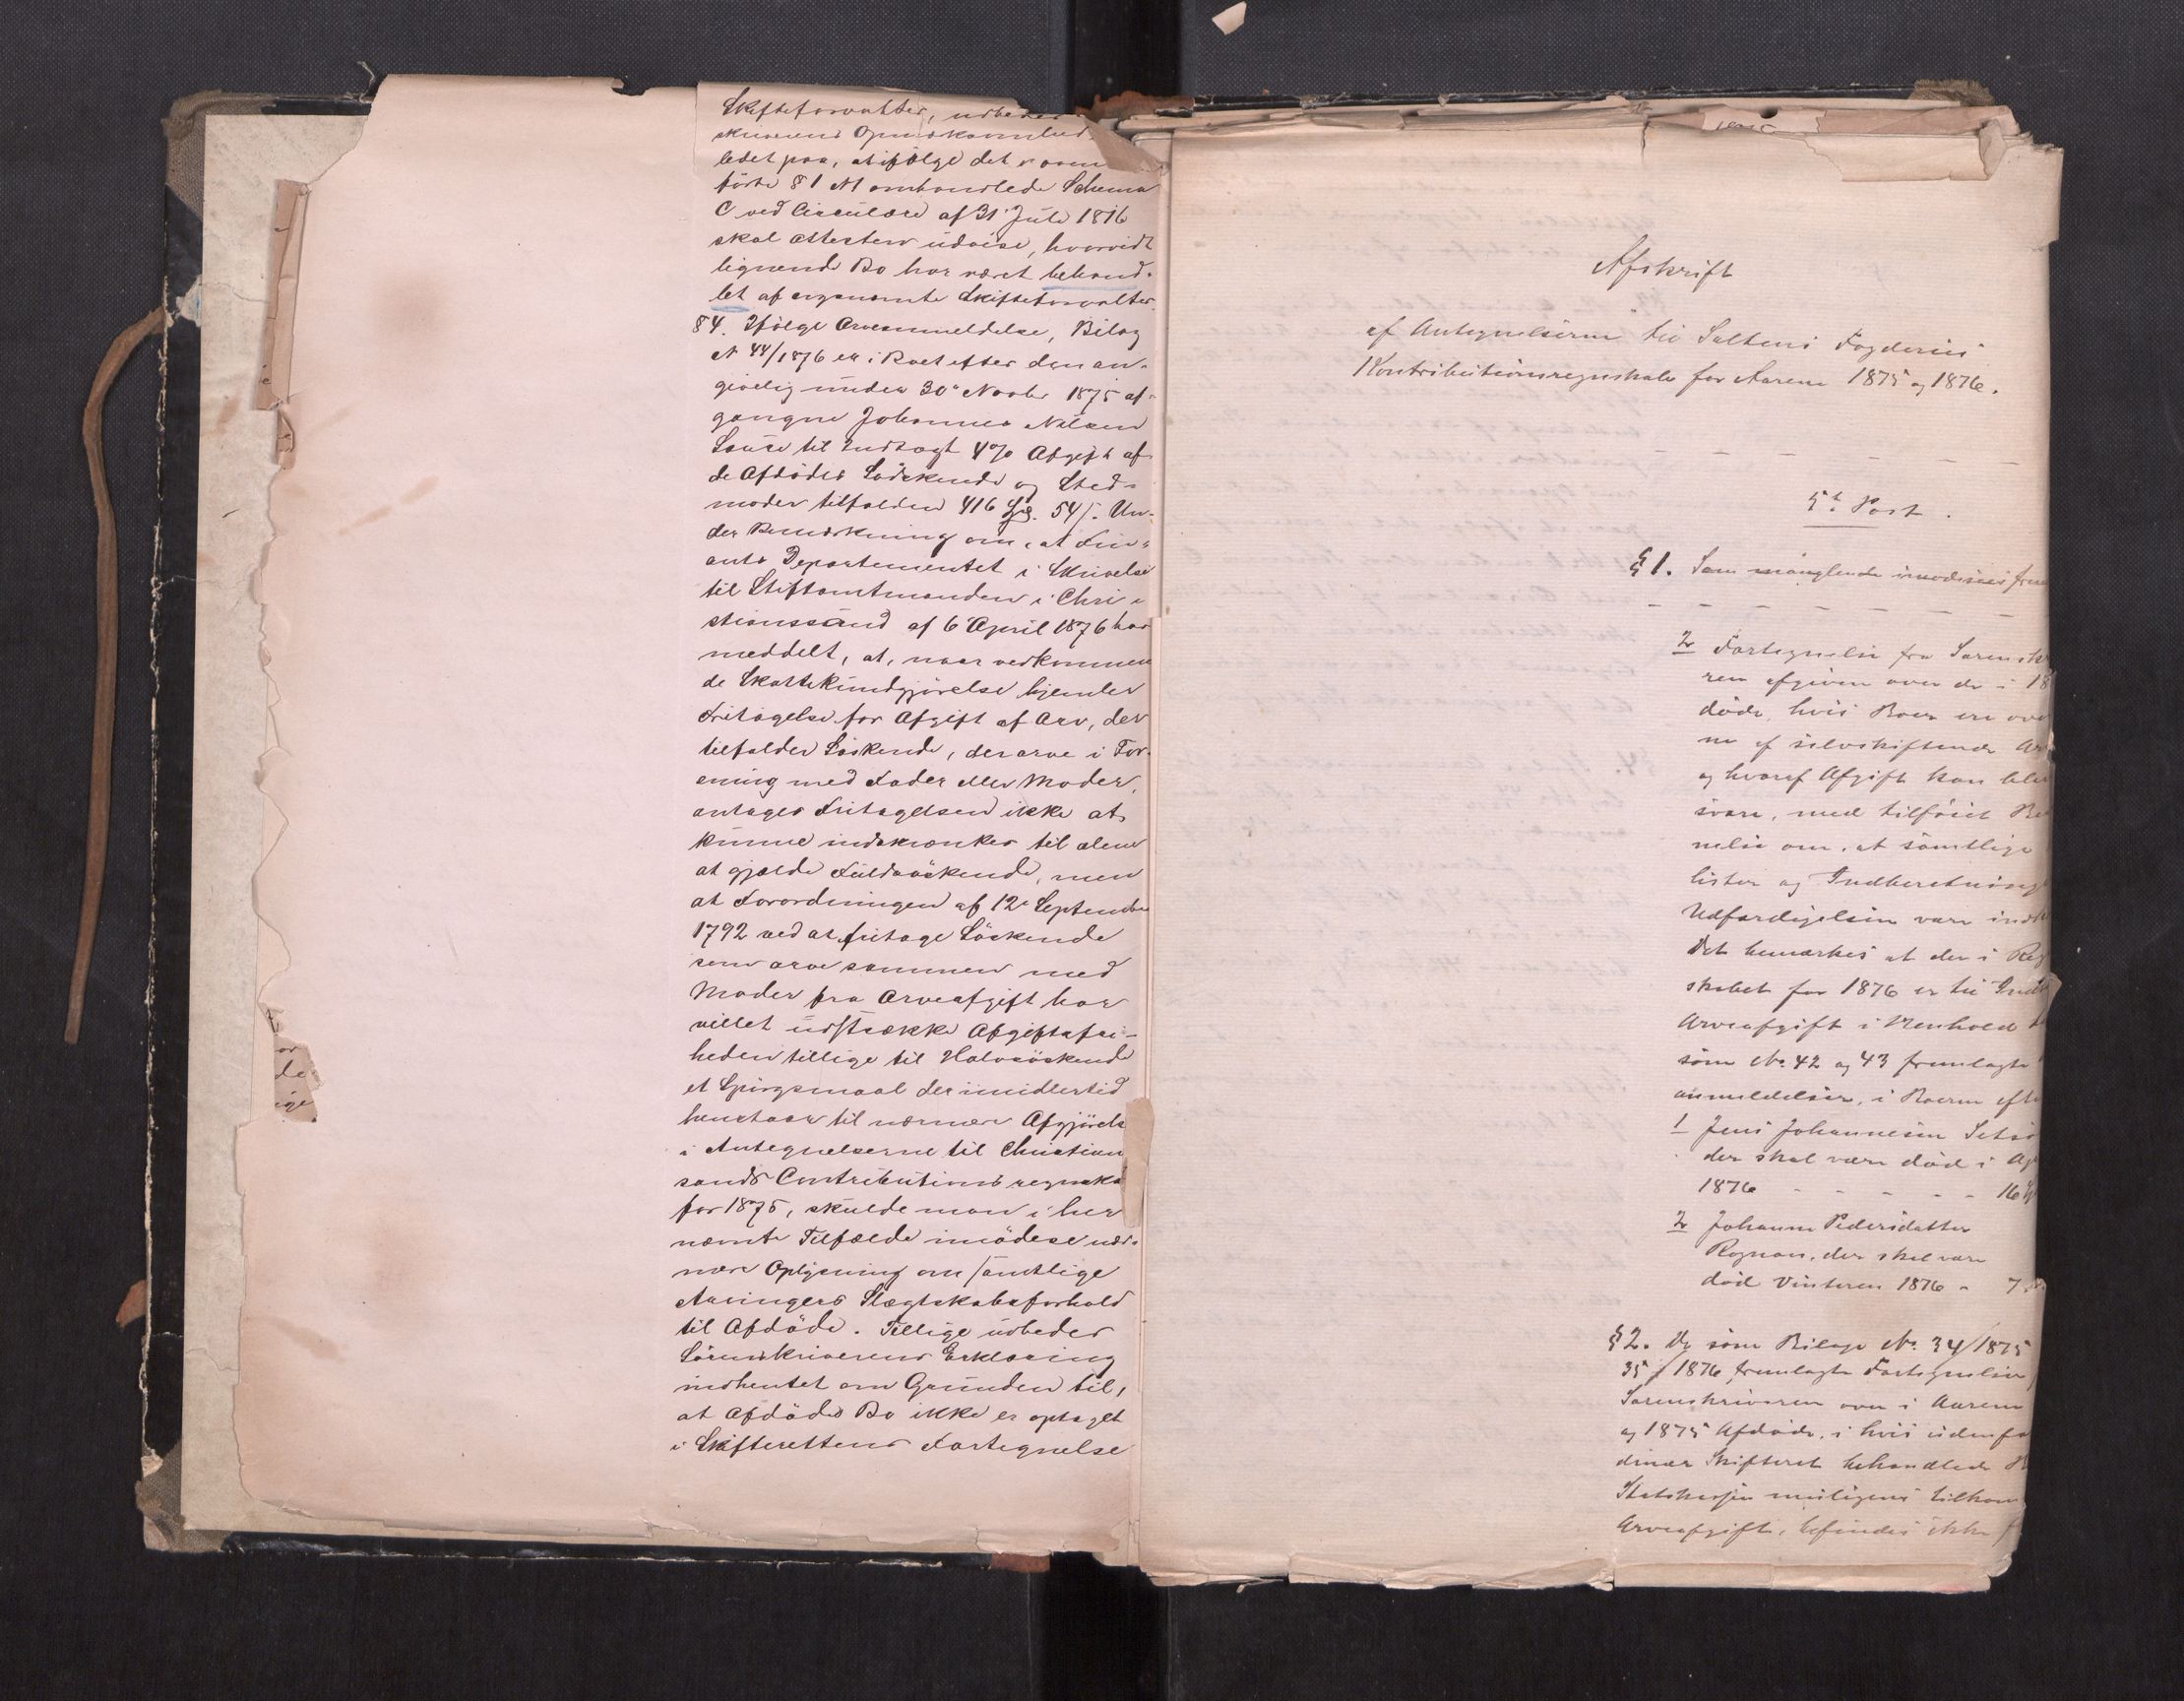 Skifteforvalter, udbedes
skriverens
ledet paa, at ifølge det
førte § 1 N 1 omhandlede Schema
C ved Circulære af 31 Juli 1876
skal Attesten udvise, hvorvidt
lignende Bo har været behand-
let af ergenomte Skifteforvalter
§ 4. Ifølge Arveanmeldelse, Bilag
N 44/1876 er i Boet efter den an-
givelig under 30' Novbr 1875 af-
gangne Johannes Nilsen
til Indtægt 4% Afgift af
de Afdødes Sødskende og Sted-
moder tilfalden 416 Spd. 54 ß. Un-
der Bemærkning om, at Fin-
ants Departementet i Skrivelse
til Stiftamtmanden i Chri-
stianssand af 6' April 1876 har
meddelt, at, naar vedkommen
de Skattekundgjørelse hjemler
Fritagelse for Afgift af Arv, der
tilfalder Søskende, der arve i For-
ening med Fader eller Moder,
antages Fritagelsen ikke at
kunne indskrænkes til alene
at gjælde Fuldsøskende, men
at Forordningen af 12' September
1792 ved at fritage Søskende
som arve sammen med
Moder fra Arveafgift har
villet udstrække Afgiftsfri-
heden tillige til Halvsøskende
et Spørgsmaal der imidlertid
henstaar til nærmere Afgjørelse
i Antegnelserne til Christian
sands Contributionsregnska
for 1875, skulde man i her
nævnte Tilfælde imødese nær-
mere Oplysning om samtlige
Arvingers Slægtskabsforhold
til Afdøde. Tillige udbedes
Sorenskriverens Erklæring
indhentet om Grunden til,
at Afdødes Bo ikke er optaget
i Skifterettens Fortegnelse
or
de
ige
Afskrift
af Antegnelserne til Saltens Fogderies
Kontributionsregnskab for Aarene 1875 og 1876.
5t Post.
§ 1. Som manglende imødesees frem
2 Fortegnelse fra Sorenskr
ren afgiven over de i 18
døde, hvis Boer ere ove
ne af selvskiftende Ar
og hvoraf Afgift kan bli
svare, med tilføiet Be
nelse om, at samtlige
lister og Indberetning
Udfærdigelsen vare ind
Det bemærkes at der i Reg
skabet for 1876 er til Ind
Arveafgift i Henhold t
som No. 42 og 43 fremlagte
anmeldelser, i Boerne eft
1 Jens Johannesen Setsø
der skal være død i Ap
1876 - - - - - 16
2 Johanna Pedersdatter
Rognan, der skal være
død Vinteren 1876 - 7
§ 2. De som Bilage No. 34/1875
35/1876 fremlagte Fortegnelser
Sorenskriveren over i Aarene
og 1875 Afdøde, i hvis udenfo
dinær Skifteret behandlede B
Statskassen muligens tilkom
Arveafgift, befindes ikke f